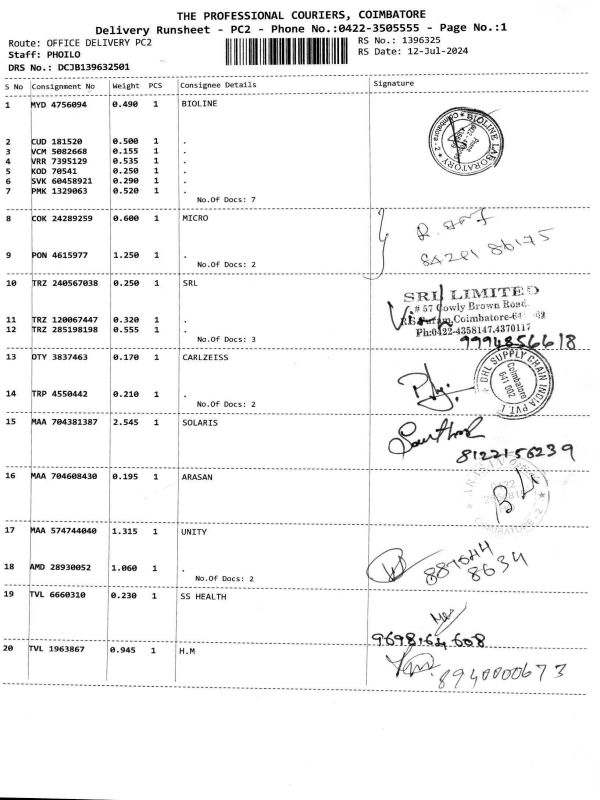 THE PROFESSIONAL COURIERS, COIMBATORE
Delivery Runsheet - PC2 - Phone No.:0422-3505555 - Page No.:1
Route: OFFICE DELIVERY PC2
RS No.: 1396325
Staff: PHOILO
RS Date: 12-Jul-2024
DRS No.: DCJB139632501
S No Consignment No Weight PCS Consignee Details Signature
1 MYD 4756094 0.490 1 BIOLINE
BIOLINE LABORATORY
Coimbatore - 2
2 CUD 181520 0.500 1 .
3 VCM 5082668 0.155 1 .
4 VRR 7395129 0.535 1 .
5 KOD 70541 0.250 1 .
6 SVK 60458921 0.290 1 .
7 PMK 1329063 0.520 1 .
No.Of Docs: 7
8 COK 24289259 0.600 1 MICRO
9 PON 4615977 1.250 1 .
No.Of Docs: 2
10 TRZ 240567038 0.250 1 SRL
SRL LIMITED
# 57 Cowly Brown Road
11 TRZ 120067447 0.320 1 .
Coimbatore-64
12 TRZ 285198198 0.555 1 .
Ph:0422-4358147,4370117
No.Of Docs: 3
9994856618
13 DTY 3837463 0.170 1 CARLZEISS
DHL SUPPLY CHAIN INDIA PVT. L
Coimbatore
641 002
14 TRP 4550442 0.210 1 .
No.Of Docs: 2
15 MAA 704381387 2.545 1 SOLARIS
8122156239
16 MAA 704608430 0.195 1 ARASAN
COIMBATORE-2
17 MAA 574744040 1.315 1 UNITY
18 AMD 28930052 1.060 1 .
8634
No.Of Docs: 2
19 TVL 6660310 0.230 1 SS HEALTH
9698164608
20 TVL 1963867 0.945 1 H.M
8940000673